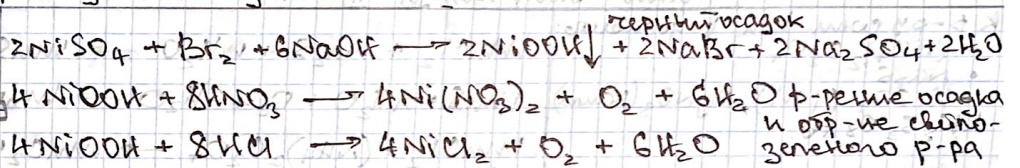 черный осадок
2NiSO₄ + Br₂ + 6NaOH → 2NiOOH↓ + 2NaBr + 2Na₂SO₄ + 2H₂O
4 NiOOH + 8HNO₃ → 4Ni(NO₃)₂ + O₂ + 6H₂O р-рение осадка
и обр-ие светло-
4NiOOH + 8HCl → 4NiCl₂ + O₂ + 6H₂O зеленого р-ра